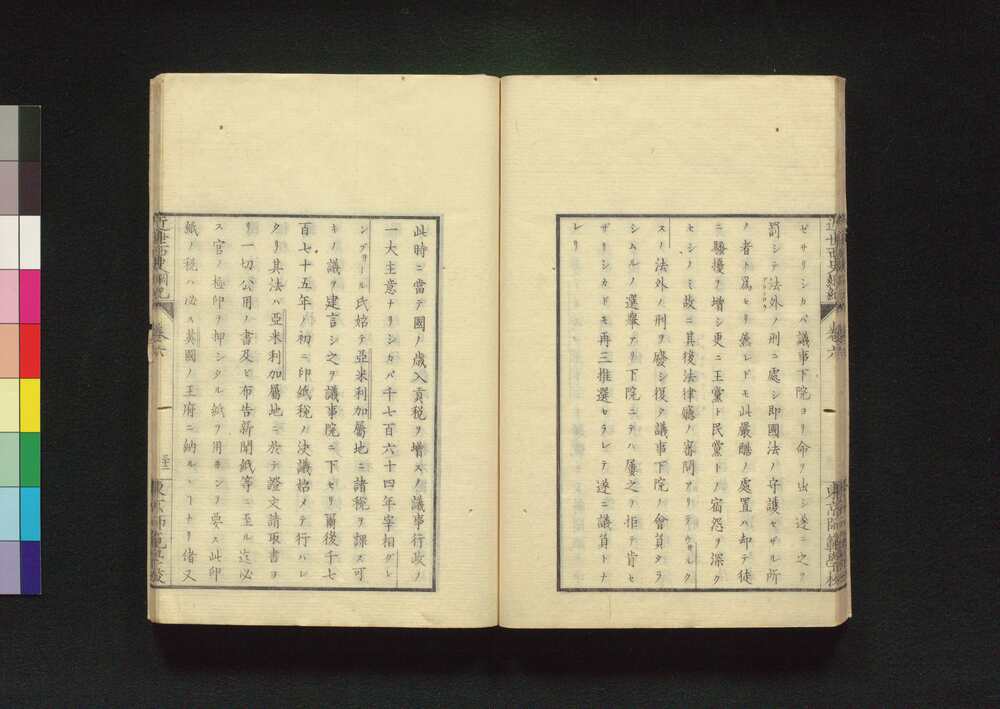 ゼサリシカバ議事下院ヨリ命ヲ出シ遂ニ之ヲ
罰シテ法外ノ刑ニ處シ即國法ノ守護セザル所
ノ者ト爲セリ然レドモ此嚴酷ノ處置ハ却テ徒
ニ騷擾ヲ增シ更ニ王黨ト民黨トノ宿怨ヲ深ク
セシノミ故ニ其後法律廳ノ審問アリテ
スール法外ノ刑ヲ廢シ復タ議事下院ノ會員タラ
シムルノ選擧アリ下院ニテハ屢之ヲ拒テ肯セ
ザリシカドモ再三推選セラレテ遂ニ議員トナ
レリ
此時ニ當テ國ノ歲入貢稅ヲ增スノ議事行政ノ
一大主意ナリシカバ千七百六十四年宰相グレ
ンヴィール氏始テ亞米利加屬地ニ諸稅ヲ課ス可
キノ議ヲ建言シ之ヲ議事院ニ下セリ爾後千七
百七十五年ノ初ニ印紙稅ノ決議始メテ行ハレ
タリ其法ハ亞米利加屬地ニ於テ證文請取書ヨ
リ一切公用ノ書及ビ布告新聞紙等ニ至ル迄必
ス官ノ極印ヲ押シタル紙ヲ用キンヲ要ス此印
紙ノ稅ハ必ス英國ノ王府ニ納ルヽトナリ偖又
近世西史綱紀
卷六
東京師範學校